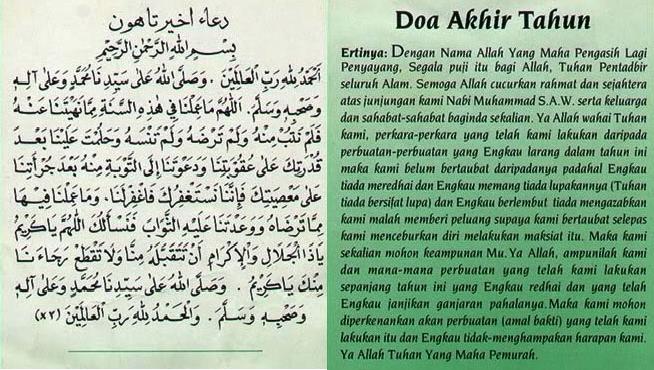 دعاء اخير تاهون
بِسْمِ اللهِ الرَّحْمٰنِ الرَّحِيْمِ
اَلْحَمْدُ لِلّٰهِ رَبِّ الْعَالَمِيْنَ . وَصَلَّى اللهُ عَلَى سَيِّدِنَا مُحَمَّدٍ وَعَلَى آلِهِ
وَصَحْبِهِ وَسَلَّمَ . اَللّٰهُمَّ مَا عَمِلْنَا فِي هٰذِهِ السَّنَةِ مِمَّا نَهَيْتَنَا عَنْهُ
فَلَمْ نَتُبْ مِنْهُ وَلَمْ تَرْضَهُ وَلَمْ تَنْسَهُ وَحَلُمْتَ عَلَيْنَا بَعْدَ
قُدْرَتِكَ عَلَى عُقُوْبَتِنَا وَدَعَوْتَنَا إِلَى التَّوْبَةِ مِنْهُ بَعْدَ جُرْأَتِنَا
عَلَى مَعْصِيَتِكَ فَإِنَّنَا نَسْتَغْفِرُكَ فَاغْفِرْ لَنَا ، وَمَا عَمِلْنَا فِيْهَا
مِمَّا تَرْضَاهُ وَوَعَدْتَنَا عَلَيْهِ الثَّوَابَ فَنَسْأَلُكَ اللّٰهُمَّ يَا كَرِيْمُ
يَا ذَا الْجَلَالِ وَالْإِكْرَامِ أَنْ تَتَقَبَّلَهُ مِنَّا وَلَا تَقْطَعْ رَجَاءَنَا
مِنْكَ يَا كَرِيْمُ . وَصَلَّى اللهُ عَلَى سَيِّدِنَا مُحَمَّدٍ وَعَلَى آلِهِ
وَصَحْبِهِ وَسَلَّمَ . وَالْحَمْدُ لِلّٰهِ رَبِّ الْعَالَمِيْنَ (×٣)
Doa Akhir Tahun
Ertinya: Dengan Nama Allah Yang Maha Pengasih Lagi
Penyayang, Segala puji itu bagi Allah, Tuhan Pentadbir
seluruh Alam. Semoga Allah cucurkan rahmat dan sejahtera
atas junjungan kami Nabi Muhammad S.A.W. serta keluarga
dan sahabat-sahabat baginda sekalian. Ya Allah wahai Tuhan
kami, perkara-perkara yang telah kami lakukan daripada
perbuatan-perbuatan yang Engkau larang dalam tahun ini
maka kami belum bertaubat daripadanya padahal Engkau
tiada meredhai dan Engkau memang tiada lupakannya (Tuhan
tiada bersifat lupa) dan Engkau berlembut tiada mengazabkan
kami malah memberi peluang supaya kami bertaubat selepas
kami menceburkan diri melakukan maksiat itu. Maka kami
sekalian mohon keampunan Mu.Ya Allah, ampunilah kami
dan mana-mana perbuatan yang telah kami lakukan
sepanjang tahun ini yang Engkau redhai dan yang telah
Engkau janjikan ganjaran pahalanya.Maka kami mohon
diperkenankan akan perbuatan (amal bakti) yang telah kami
lakukan itu dan Engkau tidak-menghampakan harapan kami.
Ya Allah Tuhan Yang Maha Pemurah.